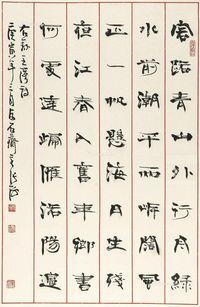 客路青山外行舟綠
水前潮平兩岸闊風
正一帆懸海日生殘
夜江春入舊年鄉書
何處達歸雁洛陽邊
右錄王灣詩
年 月